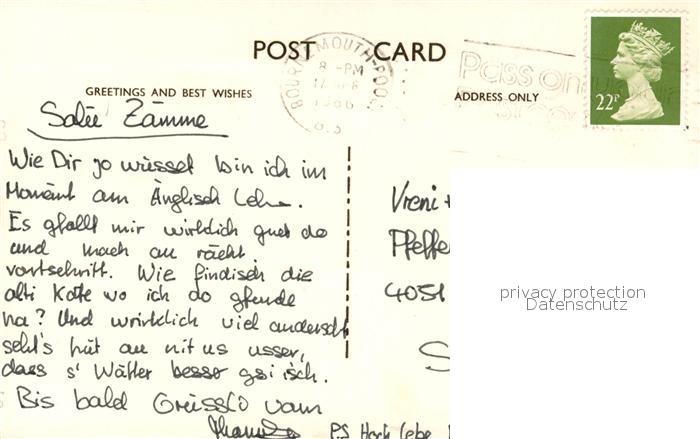 POST CARD
BOURNEMOUTH-POOLE
8 -PM
1986
Pass on
22P
GREETINGS AND BEST WISHES
ADDRESS ONLY
Salü Zämme
Wie Dir jo wüsset bin ich im
Momänt am Änglisch Lehre.
Es gfallt mir wirklich guet do
und mach au rächt
vortschritt. Wie findisch die
alti Karte wo ich do gfunde
ha? Und wirklich viel anderscht
seht's hüt au nit us usser,
dass s' Wätter besser gsi isch.
Bis bald Grüssli vom
P.S Hoch lebe
Vreni +
Pfeffe
4051
privacy protection
Datenschutz